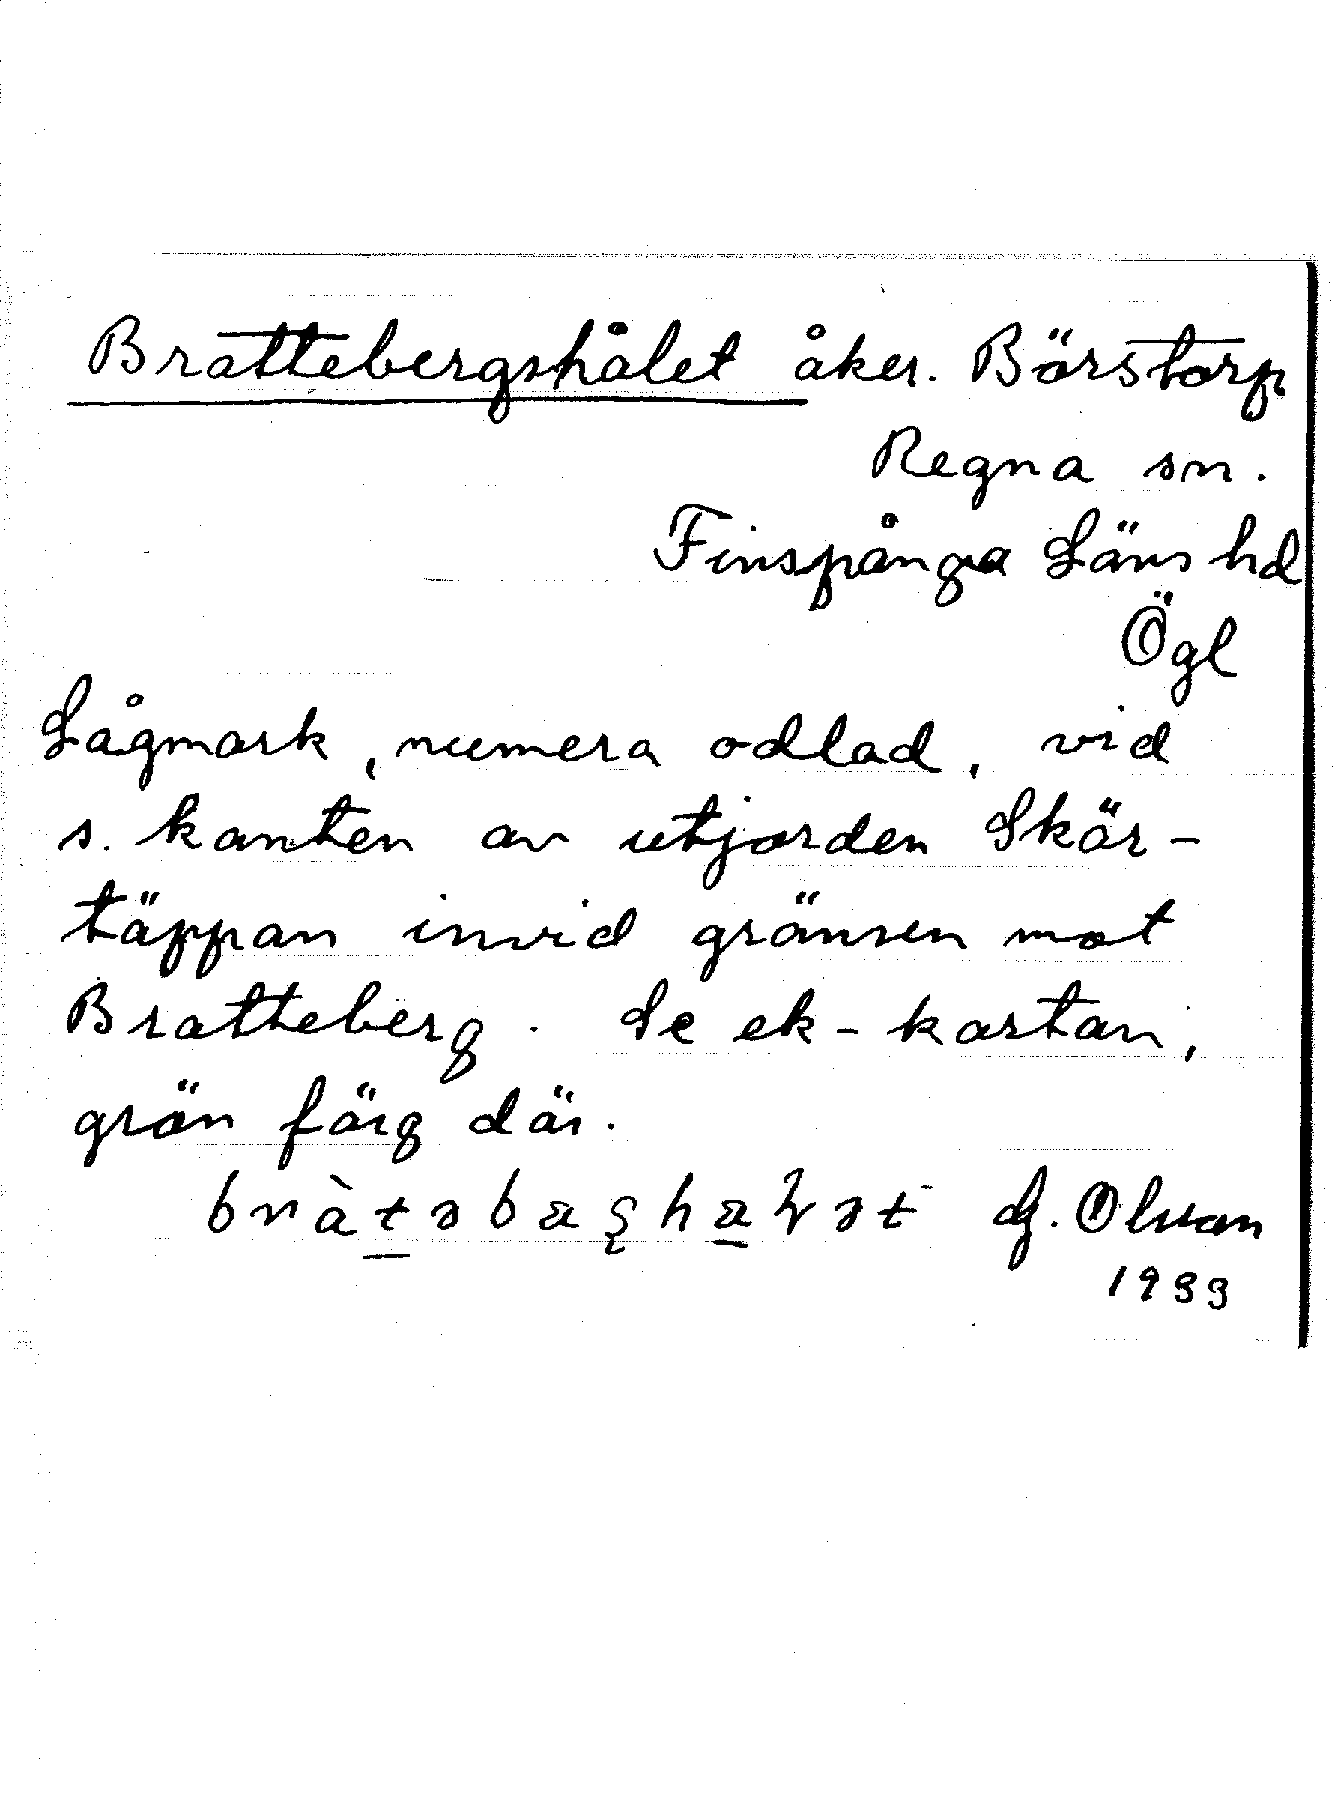 Brattebergshålet åker. Börstorp
Regna sn.
Finspånga Läns hd
Ögl
Lågmark, numera odlad, vid
s. kanten av utjorden Skär-
täppan invid gränsen mot
Bratteberg. Se ek-kartan,
grön färg där.
G. Olsson
1933